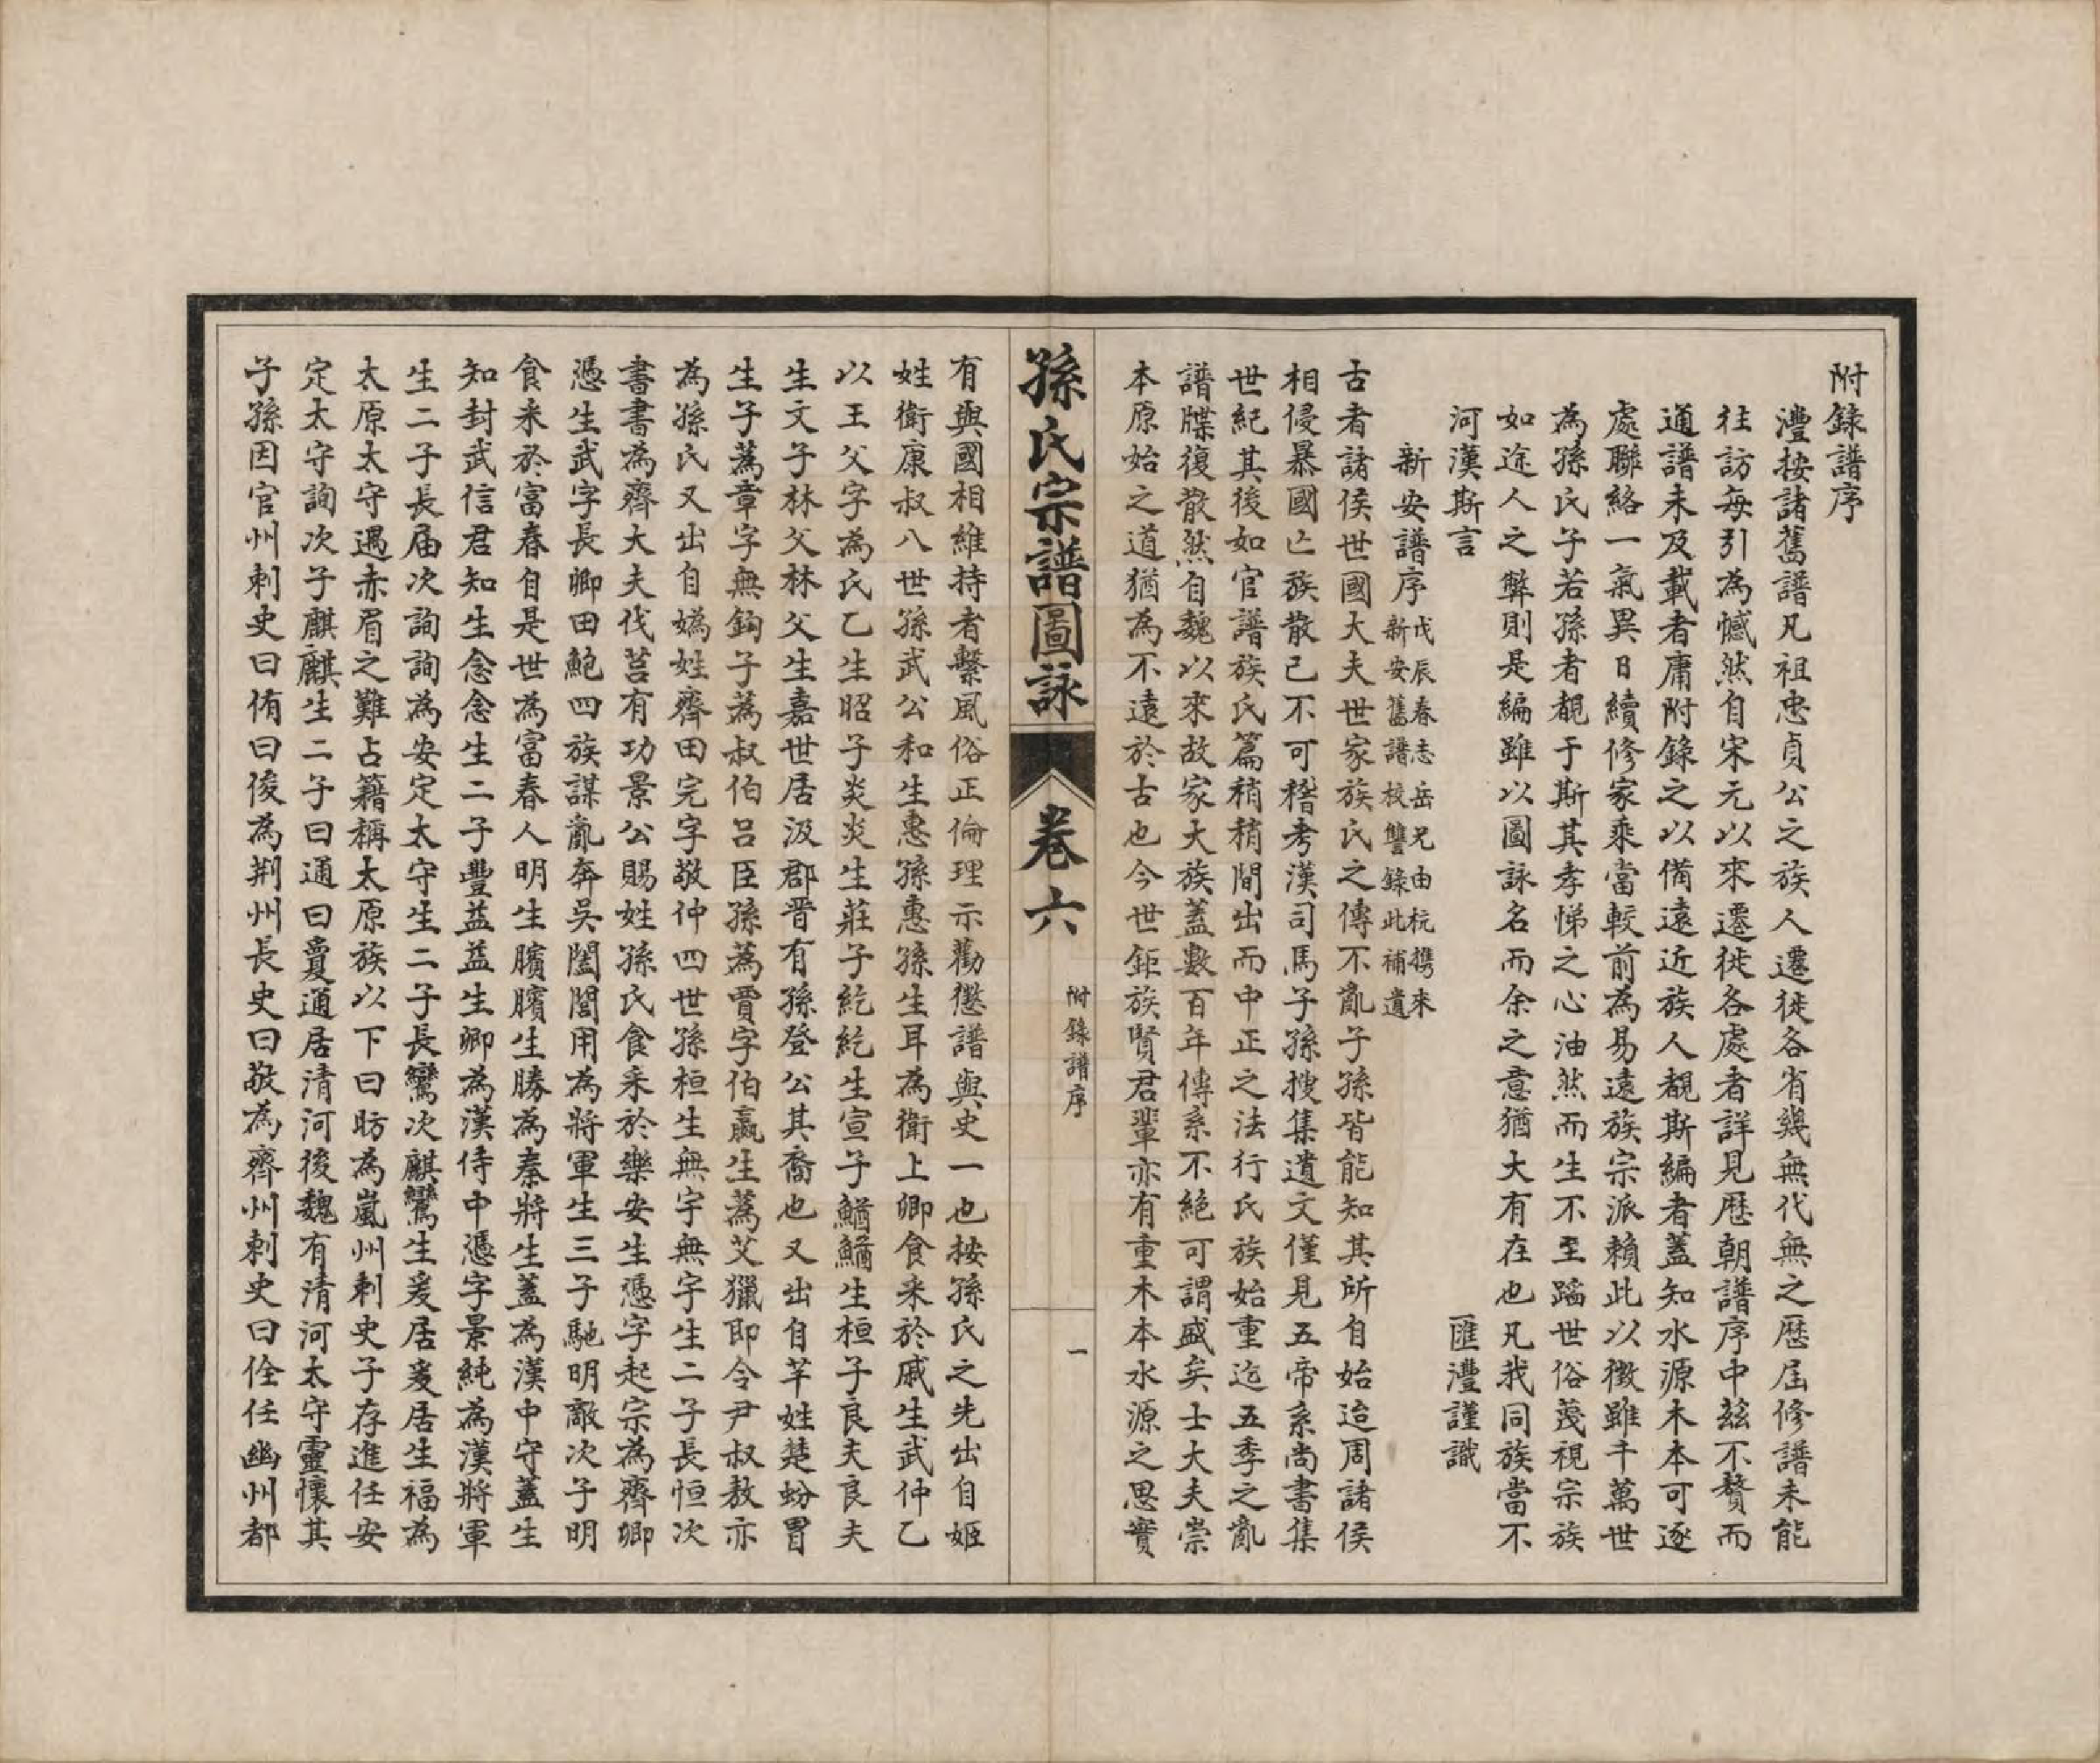 附錄譜序
灃按諸舊譜凡祖忠貞公之族人遷徙各省幾無代無之歷屆修譜未能
往訪每引為憾然自宋元以來遷徙各處者詳見歷朝譜序中茲不贅而
通譜未及載者庸附錄之以備遠近族人覩斯編者蓋知水源木本可逐
處聯絡一氣異日續修家乘當較前為易遠族宗派賴此以徵雖千萬世
為孫氏子若孫者覩于斯其孝悌之心油然而生不至蹈世俗蔑視宗族
如途人之弊則是編雖以圖詠名而余之意猶大有在也凡我同族當不
河漢斯言　匯灃謹識
新安譜序 戊辰春志岳兄由杭攜來
新安舊譜校讐錄此補遺
古者諸侯世國大夫世家族氏之傳不亂子孫皆能知其所自始迨周諸侯
相侵暴國亡族散已不可稽考漢司馬子孫搜集遺文僅見五帝系尚書集
世紀其後如官譜族氏篇稍稍間出而中正之法行氏族始重迄五季之亂
譜牒復散然自魏以來故家大族蓋數百年傳系不絕可謂盛矣士大夫崇
本原始之道猶為不遠於古也今世鉅族賢君輩亦有重木本水源之思實
孫氏宗譜圖詠
卷六
附錄譜序
一
有與國相維持者繫風俗正倫理示勸懲譜與史一也按孫氏之先出自姬
姓衛康叔八世孫武公和生惠孫惠孫生耳為衛上卿食采於戚生武仲乙
以王父字為氏乙生昭子炎炎生莊子紇紇生宣子鰌鰌生桓子良夫良夫
生文子林父林父生嘉世居汲郡晋有孫登公其裔也又出自芊姓楚蚡冒
生子蒍章字無鉤子蒍叔伯呂臣孫蒍賈字伯嬴生蒍艾獵即令尹叔敖亦
為孫氏又出自媯姓齊田完字敬仲四世孫桓生無宇無宇生二子長恒次
書書為齊大夫伐莒有功景公賜姓孫氏食采於樂安生憑字起宗為齊卿
憑生武字長卿田鮑四族謀亂奔吳闔閭用為將軍生三子馳明敵次子明
食采於富春自是世為富春人明生臏臏生勝為秦將生蓋為漢中守蓋生
知封武信君知生念念生二子豐益益生卿為漢侍中憑字景純為漢將軍
生二子長屆次詢詢為安定太守生二子長鸞次麒鸞生爰居爰居生福為
太原太守遇赤眉之難占籍稱太原族以下曰昉為嵐州刺史子存進任安
定太守詢次子麒麒生二子曰通曰敻通居清河後魏有清河太守靈懷其
子孫因官州刺史曰侑曰俊為荆州長史曰敬為齊州刺史曰佺任幽州都